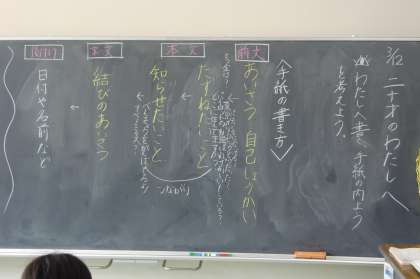 3/12 二十才のわたしへ
わたしへ書く手紙の内よう
を考えよう。
〈手紙の書き方〉
前文
あいさつ 自己しょうかい
本文
たずねたいこと
知らせたいこと
つながり
末文
結びのあいさつ
後付け
日付や名前など